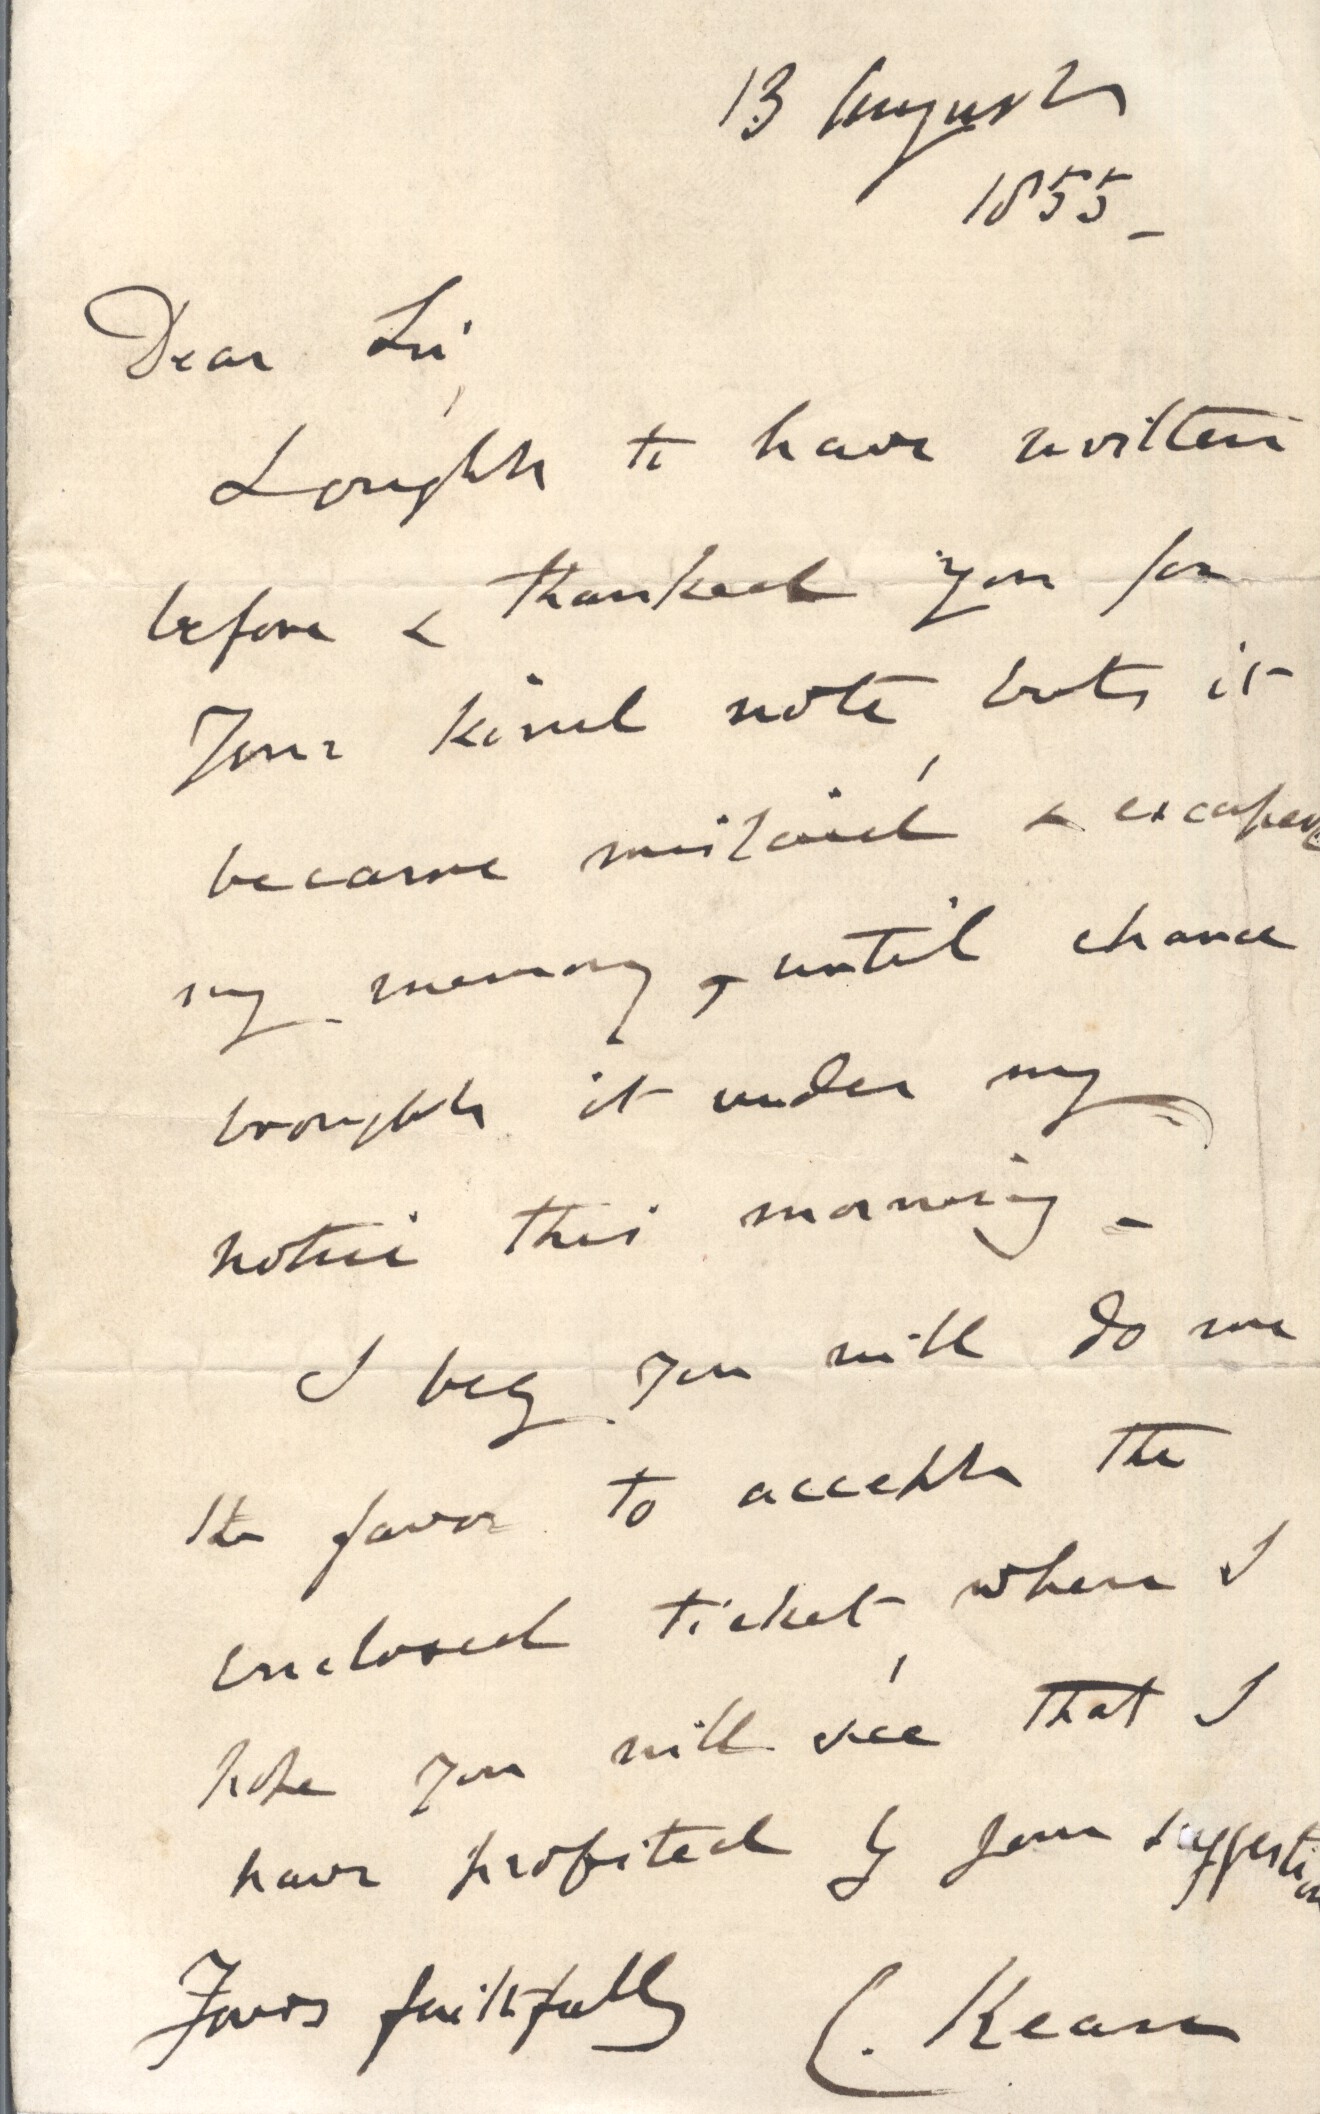 13 August
1855_
Dear Sir,
I ought to have written
before & thanked you for
Your kind note but, it
became mislaid & escaped
my memory, until chance
brought it under my
notice this morning _
I beg you will do me
the favor to accept the
enclosed ticket where I
hope you will see that I
have profited by your suggestion
Yours faithfully C. Kean